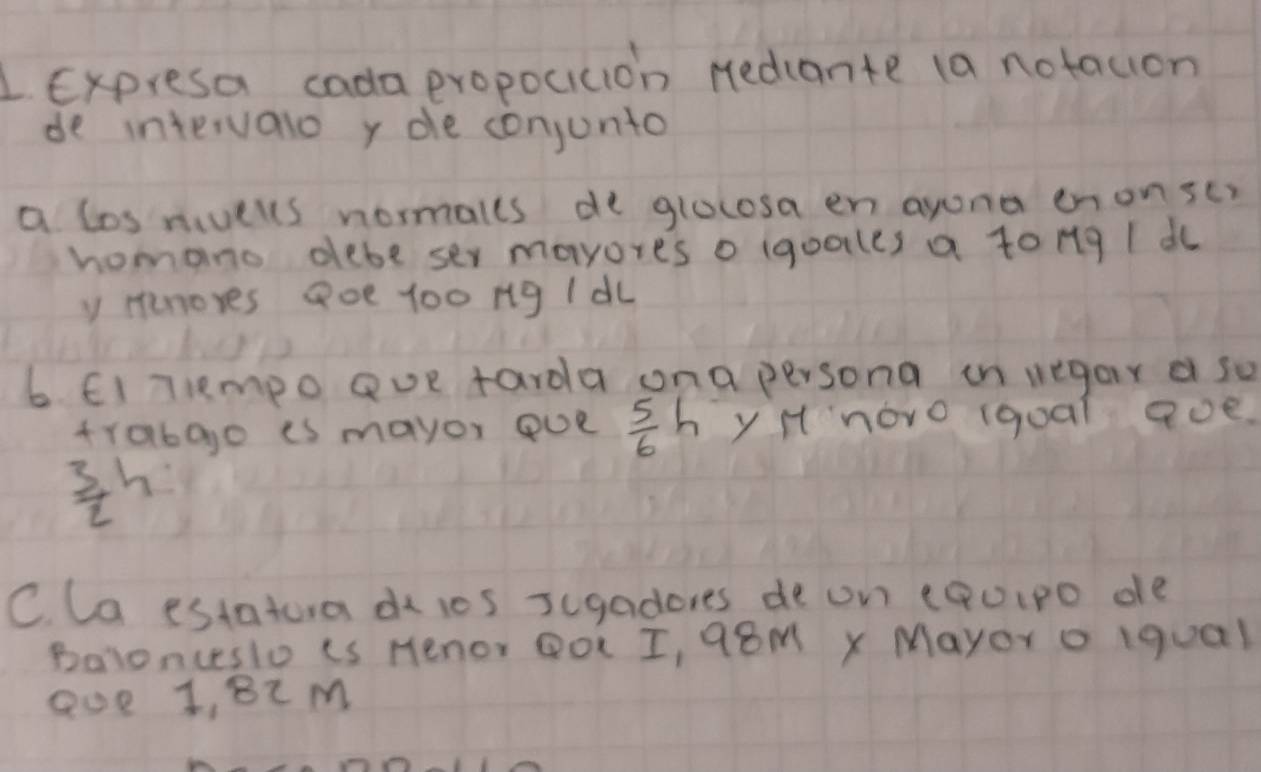 1. Expresa cada propocición Mediante la notacion
de intervalo y de conjunto
a. Los niveles normales de glocosa en ayuna en on ser
homano debe ser mayores o igoales a 70 Mg / dL
y Menores Qoe 100 Mg / dL
b. El Tiempo Que tarda una persona en llegar a su
trabajo es mayor que 5/6 h y Menor o igual que.
3/2 h.
C. La estatura de los Jugadores de un eQuipo de
Baloncesto es Menor Qoe 1,98M y Mayor o igual
Que 1,82 M